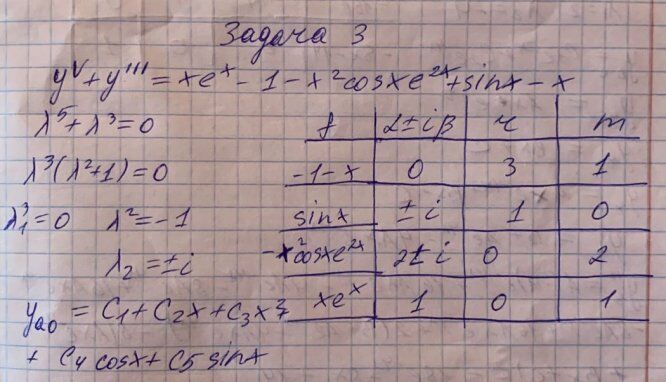 Задача 3
y^V + y''' = xe^x - 1 - x^2cosxe^2x + sinx - x
λ^5 + λ^3 = 0
λ^3(λ^2+1) = 0
λ_1^3 = 0 λ^2 = -1
λ_2 = ±i
y_ao = C_1 + C_2x + C_3x^2 +
+ C_4 cosx + C_5 sinx
f α±iβ r m
-1-x 0 3 1
sinx ±i 1 0
-x^2cosxe^2x 2±i 0 2
xe^x 1 0 1